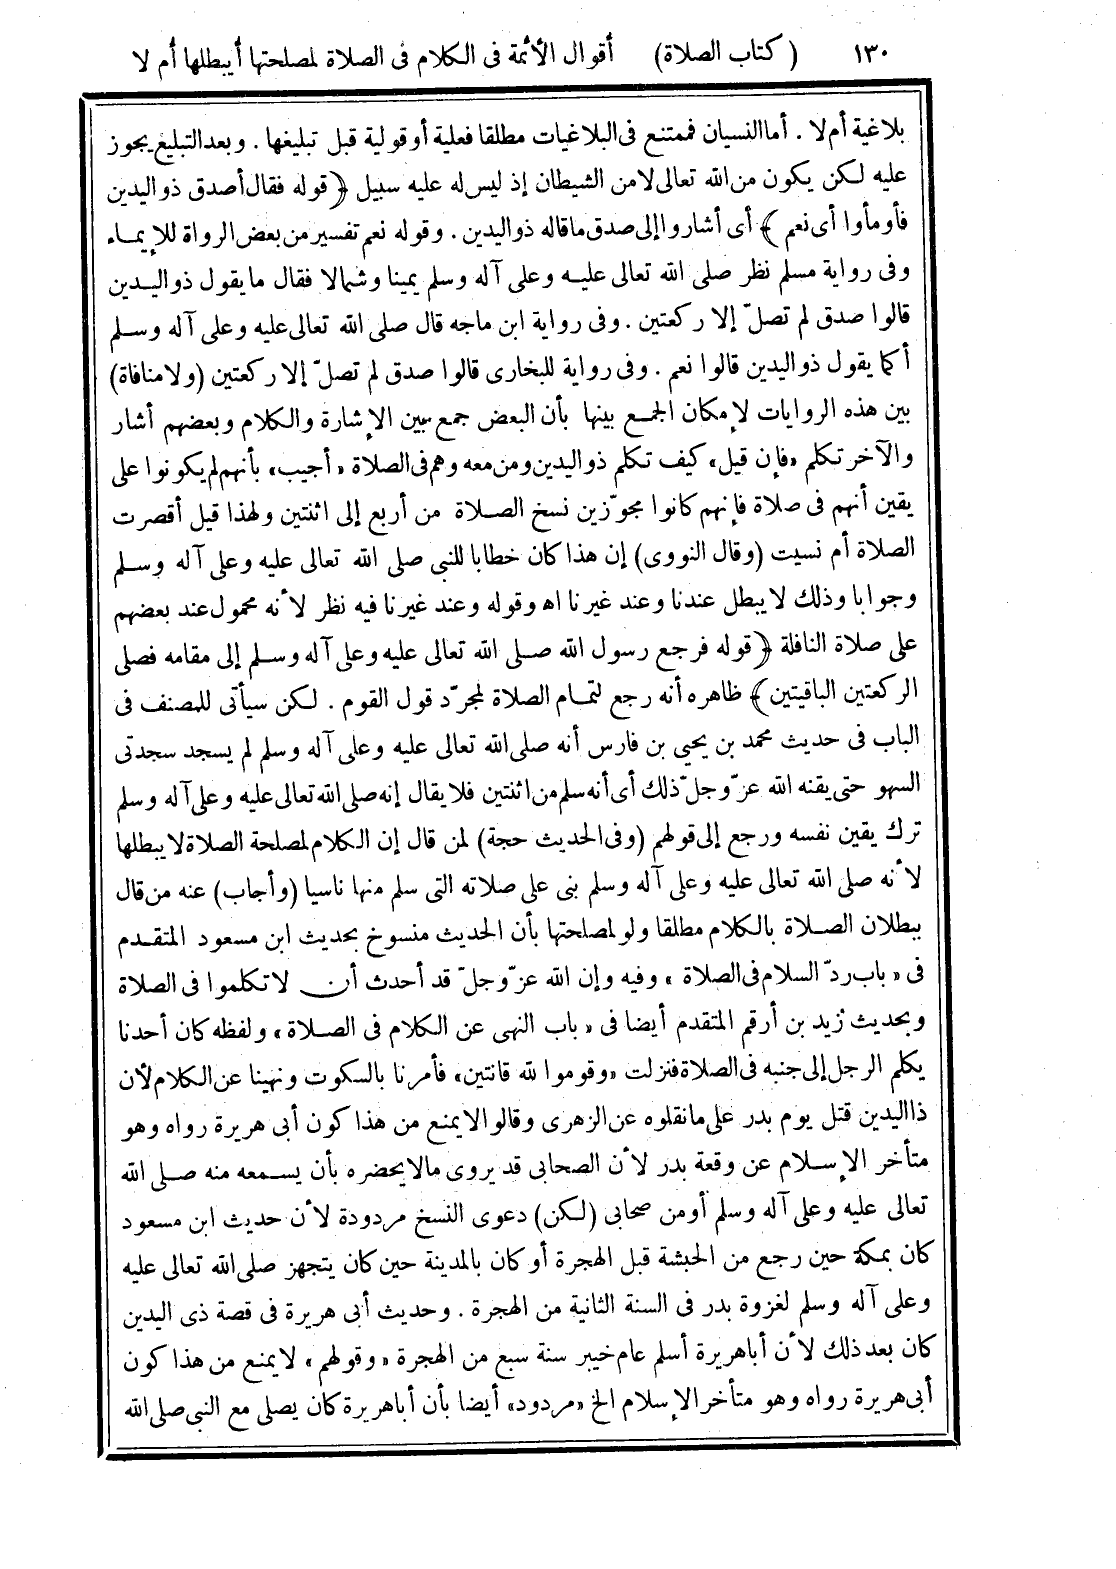 ١٣٠ (كتاب الصلاة) أقوال الأئمة فى الكلام فى الصلاة لمصلحتها أيبطلها أم لا
بلاغية أم لا . أما النسيان فممتنع فى البلاغيات مطلقا فعلية أو قولية قبل تبليغها . وبعد التبليغ يجوز
عليه لكن يكون من الله تعالى لا من الشيطان إذ ليس له عليه سبيل ﴿ قوله فقال أصدق ذو اليدين
فأومأوا أى نعم ﴾ أى أشاروا إلى صدق ما قاله ذو اليدين . وقوله نعم تفسير من بعض الرواة للإيماء
وفى رواية مسلم نظر صلى الله تعالى عليه وعلى آله وسلم يمينا وشمالا فقال ما يقول ذو اليدين
قالوا صدق لم تصلّ إلا ركعتين . وفى رواية ابن ماجه قال صلى الله تعالى عليه وعلى آله وسلم
أكما يقول ذو اليدين قالوا نعم . وفى رواية للبخارى قالوا صدق لم تصلّ إلا ركعتين (ولا منافاة)
بين هذه الروايات لإمكان الجمع بينها بأن البعض جمع بين الإشارة والكلام وبعضهم أشار
والآخر تكلم «فإن قيل» كيف تكلم ذو اليدين ومن معه وهم فى الصلاة «أجيب» بأنهم لم يكونوا على
يقين أنهم فى صلاة فإنهم كانوا مجوّزين نسخ الصلاة من أربع إلى اثنتين ولهذا قيل أقصرت
الصلاة أم نسيت (وقال النووى) إن هذا كان خطابا للنبى صلى الله تعالى عليه وعلى آله وسلم
وجوابا وذلك لا يبطل عندنا وعند غيرنا اه وقوله وعند غيرنا فيه نظر لأنه محمول عند بعضهم
على صلاة النافلة ﴿ قوله فرجع رسول الله صلى الله تعالى عليه وعلى آله وسلم إلى مقامه فصلى
الركعتين الباقيتين ﴾ ظاهره أنه رجع لتمام الصلاة لمجرّد قول القوم . لكن سيأتى للمصنف فى
الباب فى حديث محمد بن يحيى بن فارس أنه صلى الله تعالى عليه وعلى آله وسلم لم يسجد سجدتى
السهو حتى يقنه الله عزّ وجلّ ذلك أى أنه سلم من اثنتين فلا يقال إنه صلى الله تعالى عليه وعلى آله وسلم
ترك يقين نفسه ورجع إلى قولهم (وفى الحديث حجة) لمن قال إن الكلام لمصلحة الصلاة لا يبطلها
لأنه صلى الله تعالى عليه وعلى آله وسلم بنى على صلاته التى سلم منها ناسيا (وأجاب) عنه من قال
ببطلان الصلاة بالكلام مطلقا ولو لمصلحتها بأن الحديث منسوخ بحديث ابن مسعود المتقدم
فى « باب ردّ السلام فى الصلاة » وفيه وإن الله عزّ وجلّ قد أحدث أن لا تكلموا فى الصلاة
وبحديث زيد بن أرقم المتقدم أيضا فى « باب النهى عن الكلام فى الصلاة » ولفظه كان أحدنا
يكلم الرجل إلى جنبه فى الصلاة فنزلت «وقوموا لله قانتين» فأمرنا بالسكوت ونهينا عن الكلام لأن
ذا اليدين قتل يوم بدر على ما نقلوه عن الزهرى وقالوا لا يمنع من هذا كون أبى هريرة رواه وهو
متأخر الإسلام عن وقعة بدر لأن الصحابى قد يروى ما لا يحضره بأن يسمعه منه صلى الله
تعالى عليه وعلى آله وسلم أو من صحابى (لكن) دعوى النسخ مردودة لأن حديث ابن مسعود
كان بمكة حين رجع من الحبشة قبل الهجرة أو كان بالمدينة حين كان يتجهز صلى الله تعالى عليه
وعلى آله وسلم لغزوة بدر فى السنة الثانية من الهجرة . وحديث أبى هريرة فى قصة ذى اليدين
كان بعد ذلك لأن أبا هريرة أسلم عام خيبر سنة سبع من الهجرة « وقولهم » لا يمنع من هذا كون
أبى هريرة رواه وهو متأخر الإسلام الخ «مردود» أيضا بأن أبا هريرة كان يصلى مع النبى صلى الله